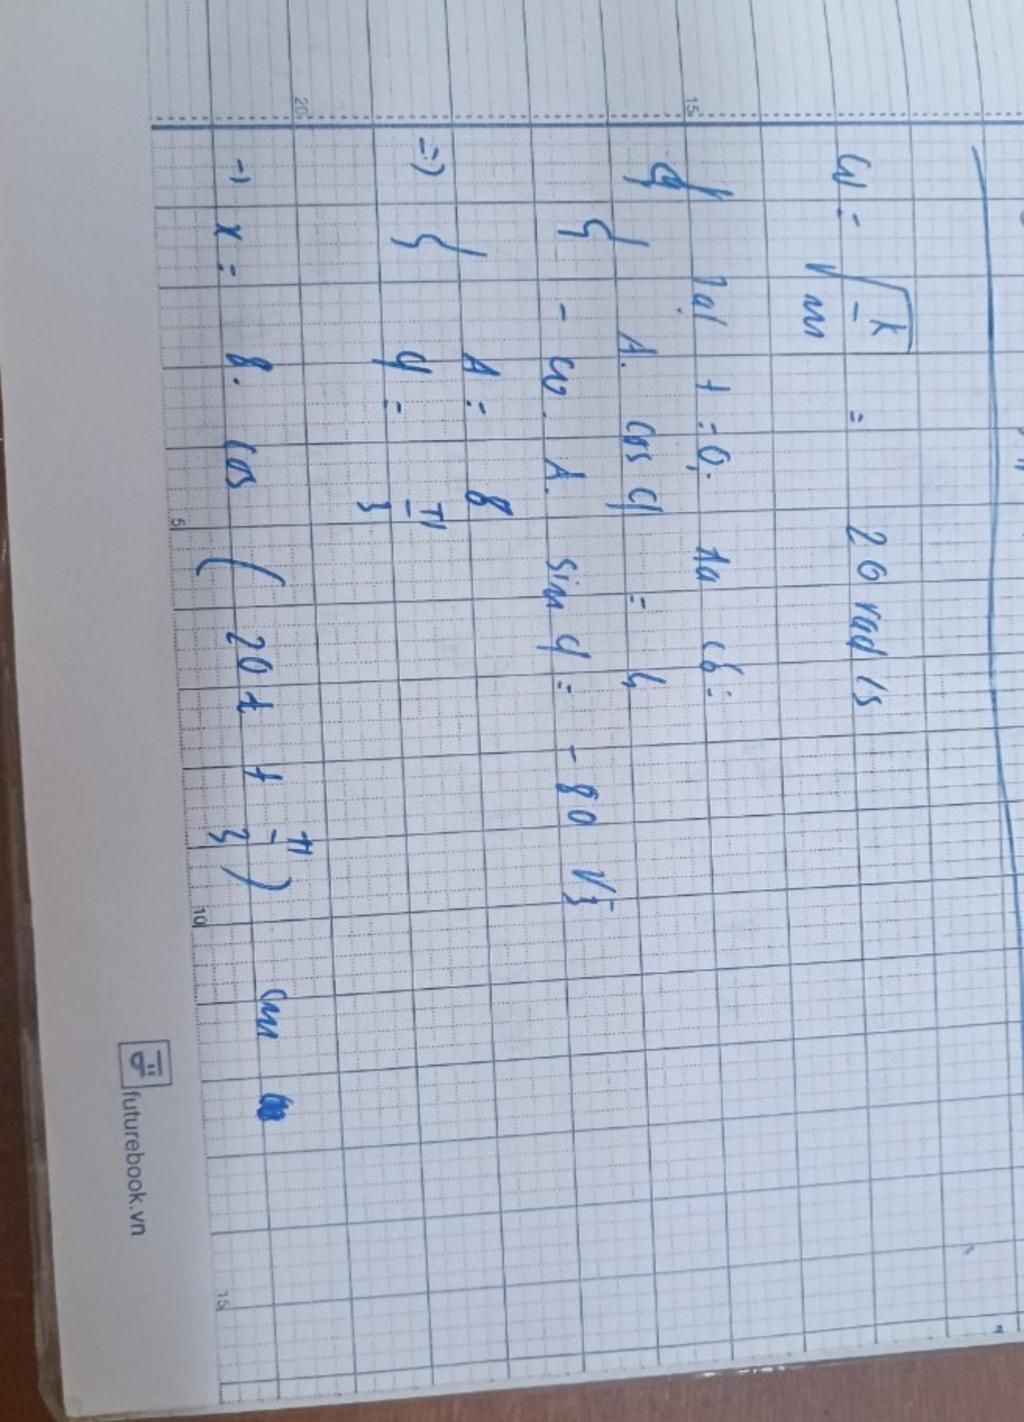 ω = √(k/m) = 20 rad/s
Tại t = 0, ta có:
{ A. cos φ = 4
- ω. A. sin φ = - 80 √3
=> { A = 8
φ = π/3
-> x = 8. cos ( 20t + π/3 ) cm
15
20
5
10
15
futurebook.vn